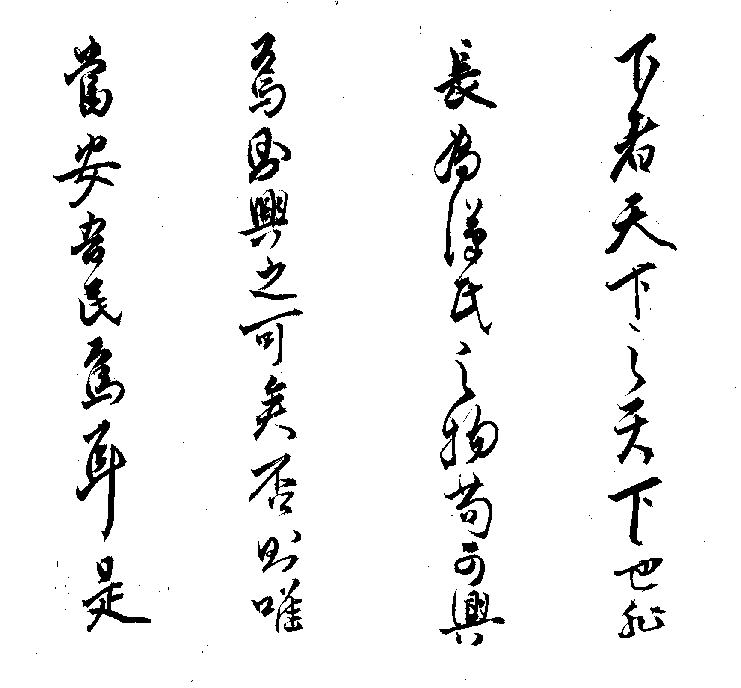 下者天下之天下也非
長為漢氏之物苟可興
焉則興之可矣否則唯
當安吾民焉耳是